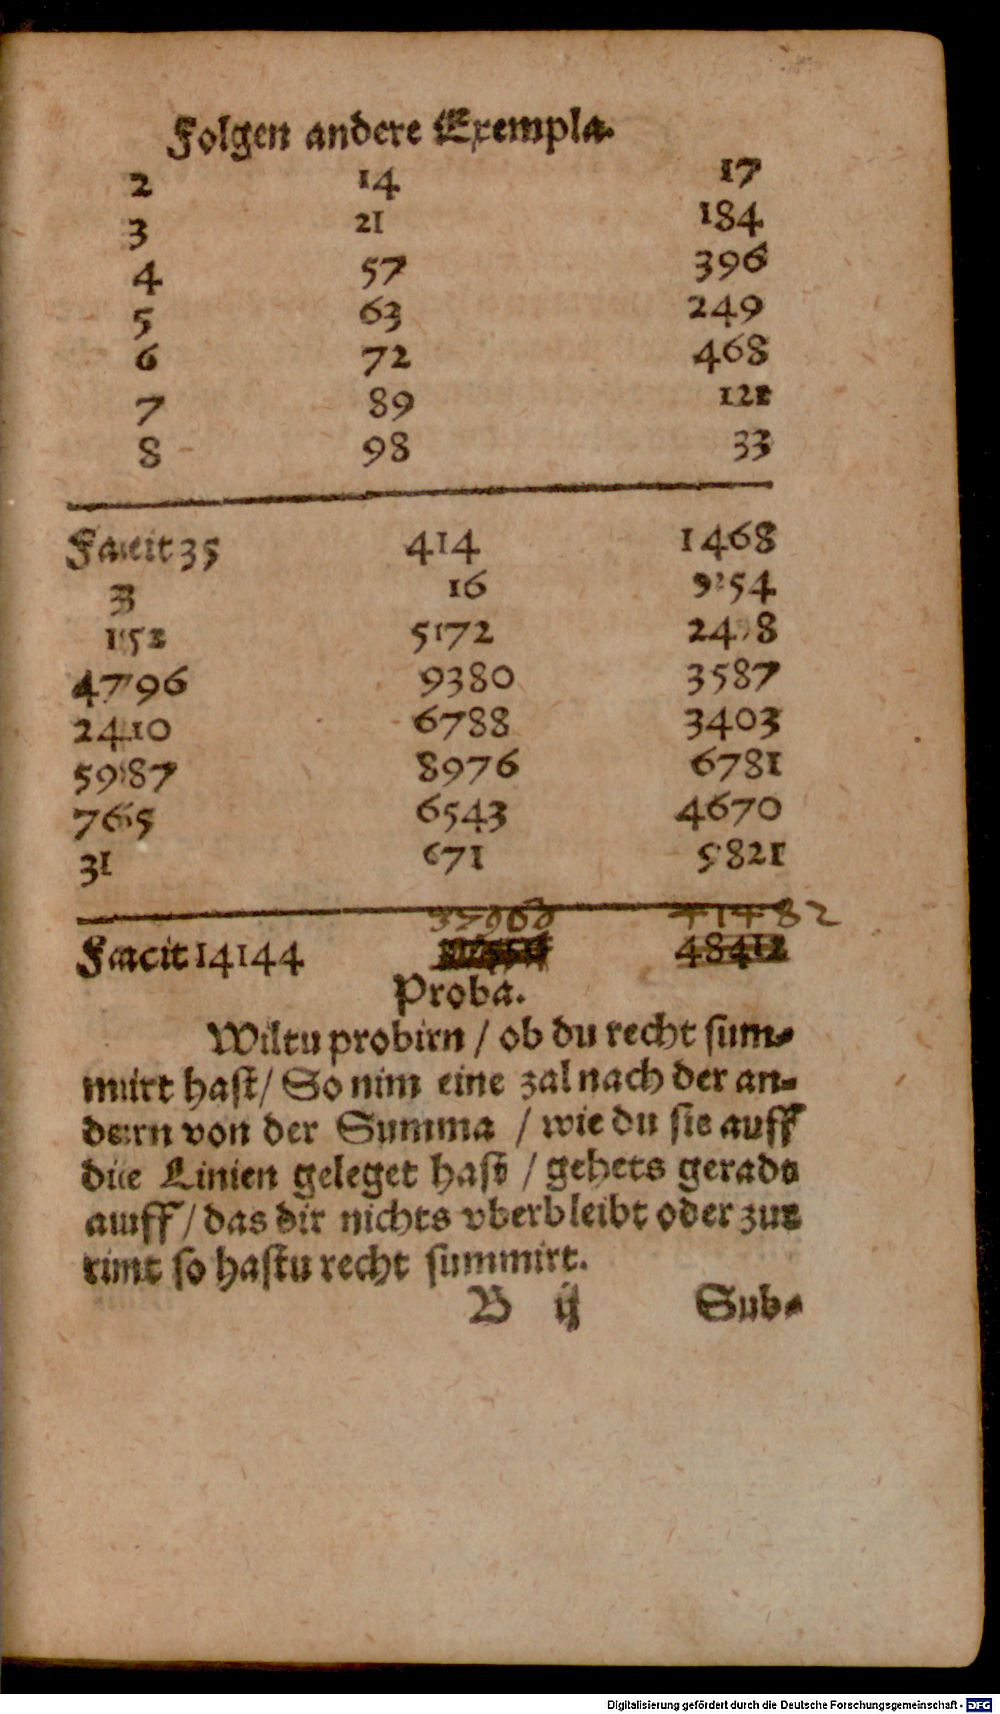 Folgen andere Exempla.
2 14 17
3 21 184
4 57 396
5 63 249
6 72 468
7 89 121
8 98 33
Facit 35 414 1468
3 16 9254
152 5172 24 8
4796 9380 3587
2410 6788 3403
5987 8976 6781
765 6543 4670
31 671 5821
41482
Facit 14144 48412
Proba.
Wiltu probirn / ob du recht sum⸗
mirt hast / So nim eine zal nach der an⸗
dern von der Summa / wie du sie auff
die Linien geleget hast / gehets gerade
auff / das dir nichts vberbleibt oder zur
rint so hastu recht summirt.
B ij Sub⸗
Digitalisierung gefördert durch die Deutsche Forschungsgemeinschaft - DFG